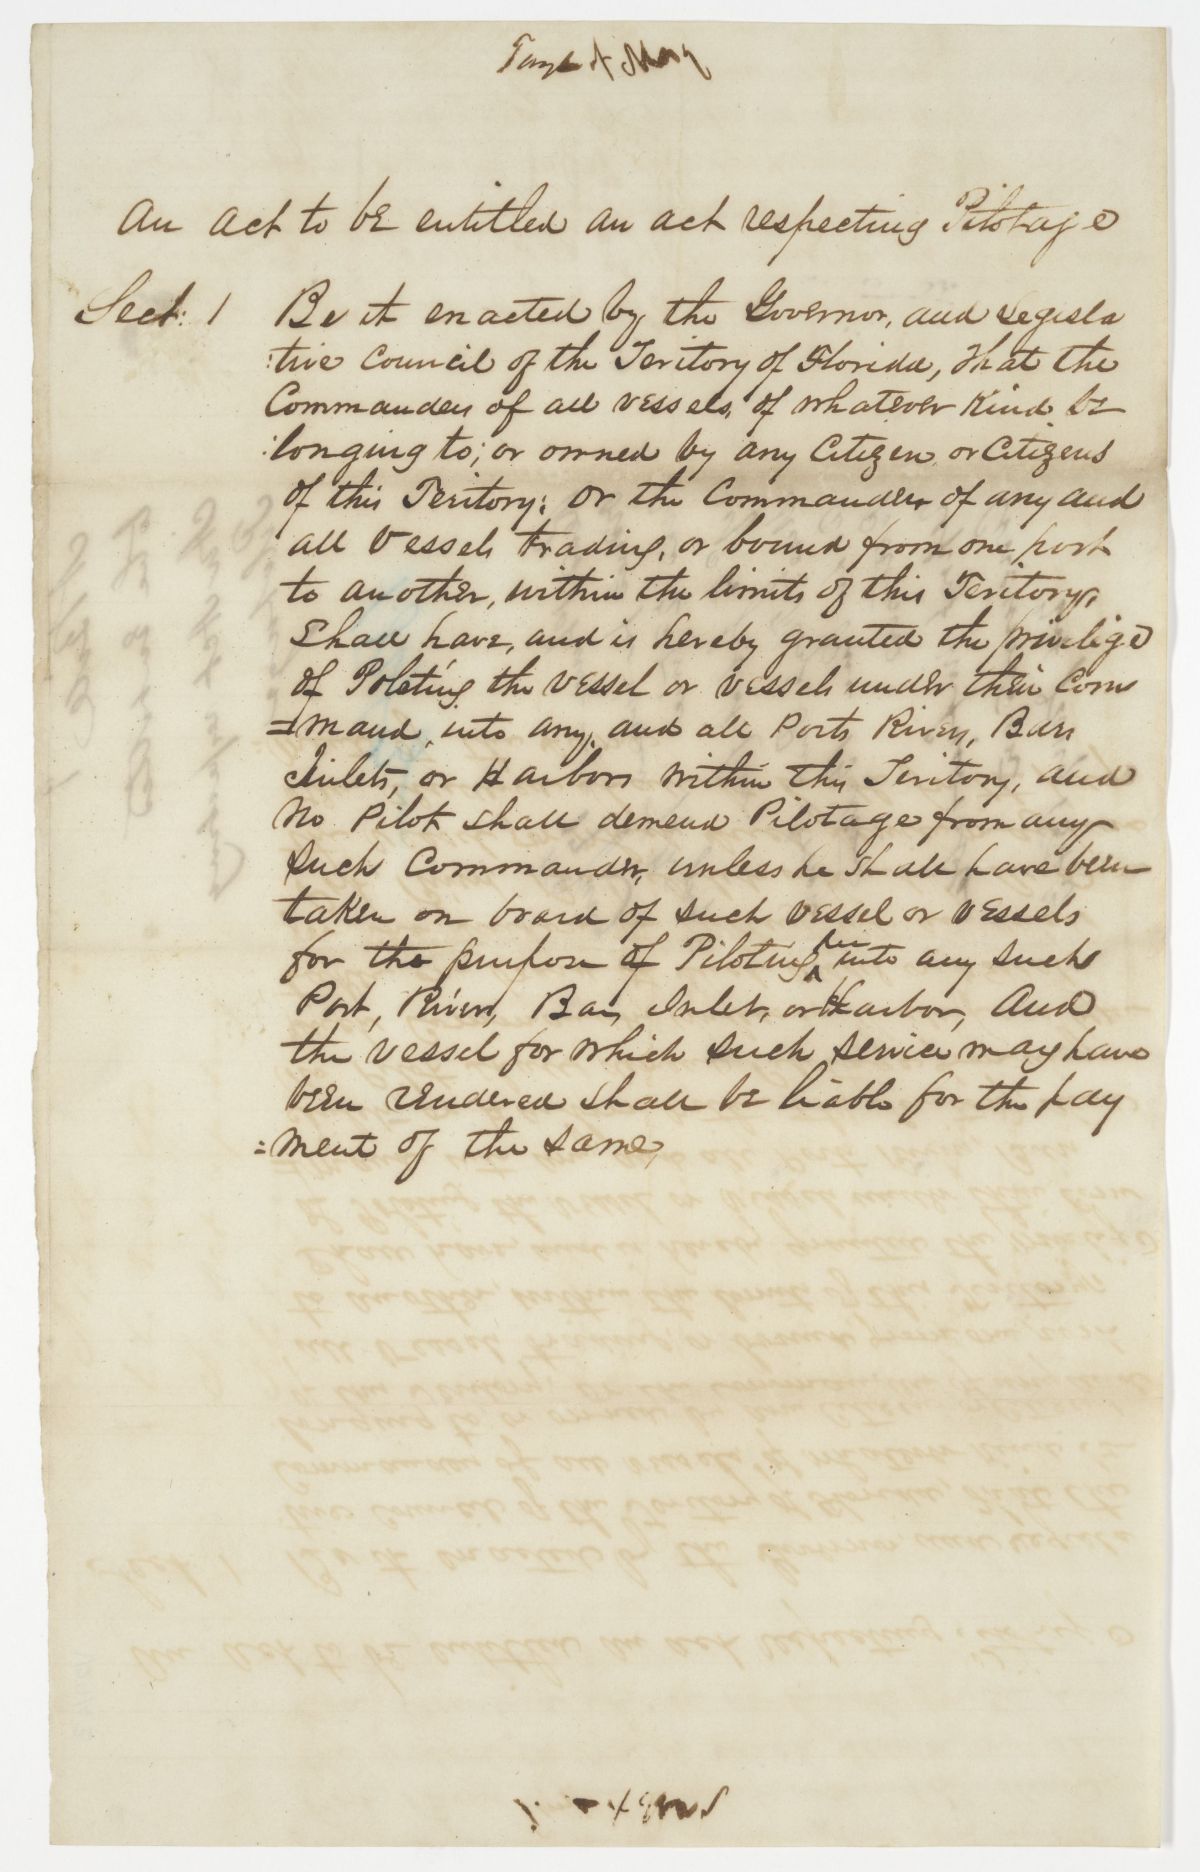 An act to be entitled an act respecting Pilotage
Sect: 1 Be it enacted by the Governor, and Legisla
:tive Council of the Teritory of Florida, That the
Commanders of all vessels, of whatever Kind be
:longing to; or owned by any Citizen or Citizens
of this Teritory; or the Commanders of any and
all Vessels trading, or bound from one port
to another, within the limits of this Teritory,
Shall have, and is hereby granted the privilige
of Poleting the vessel or vessels under their Com
=mand, into any, and all Ports Rivers, Bars
Inlets, or Harbors within this Teritory, and
No Pilot shall demend Pilotage from any
such Commander, unless he shall have been
taken on board of such vessel or vessels
for the purpose of Piloting her into any such
Port, River, Bar, Inlet, or Harbor, And
the vessel for which such service may have
been rendered shall be liable for the pay
=ment of the same,